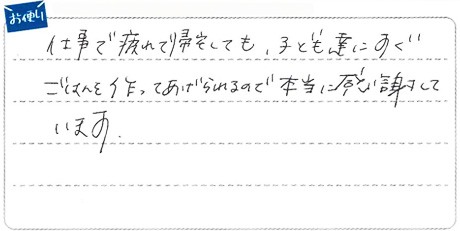 お便り
仕事で疲れて帰宅しても、子ども達にすぐ
ごはんを作ってあげられるので本当に感謝して
います。